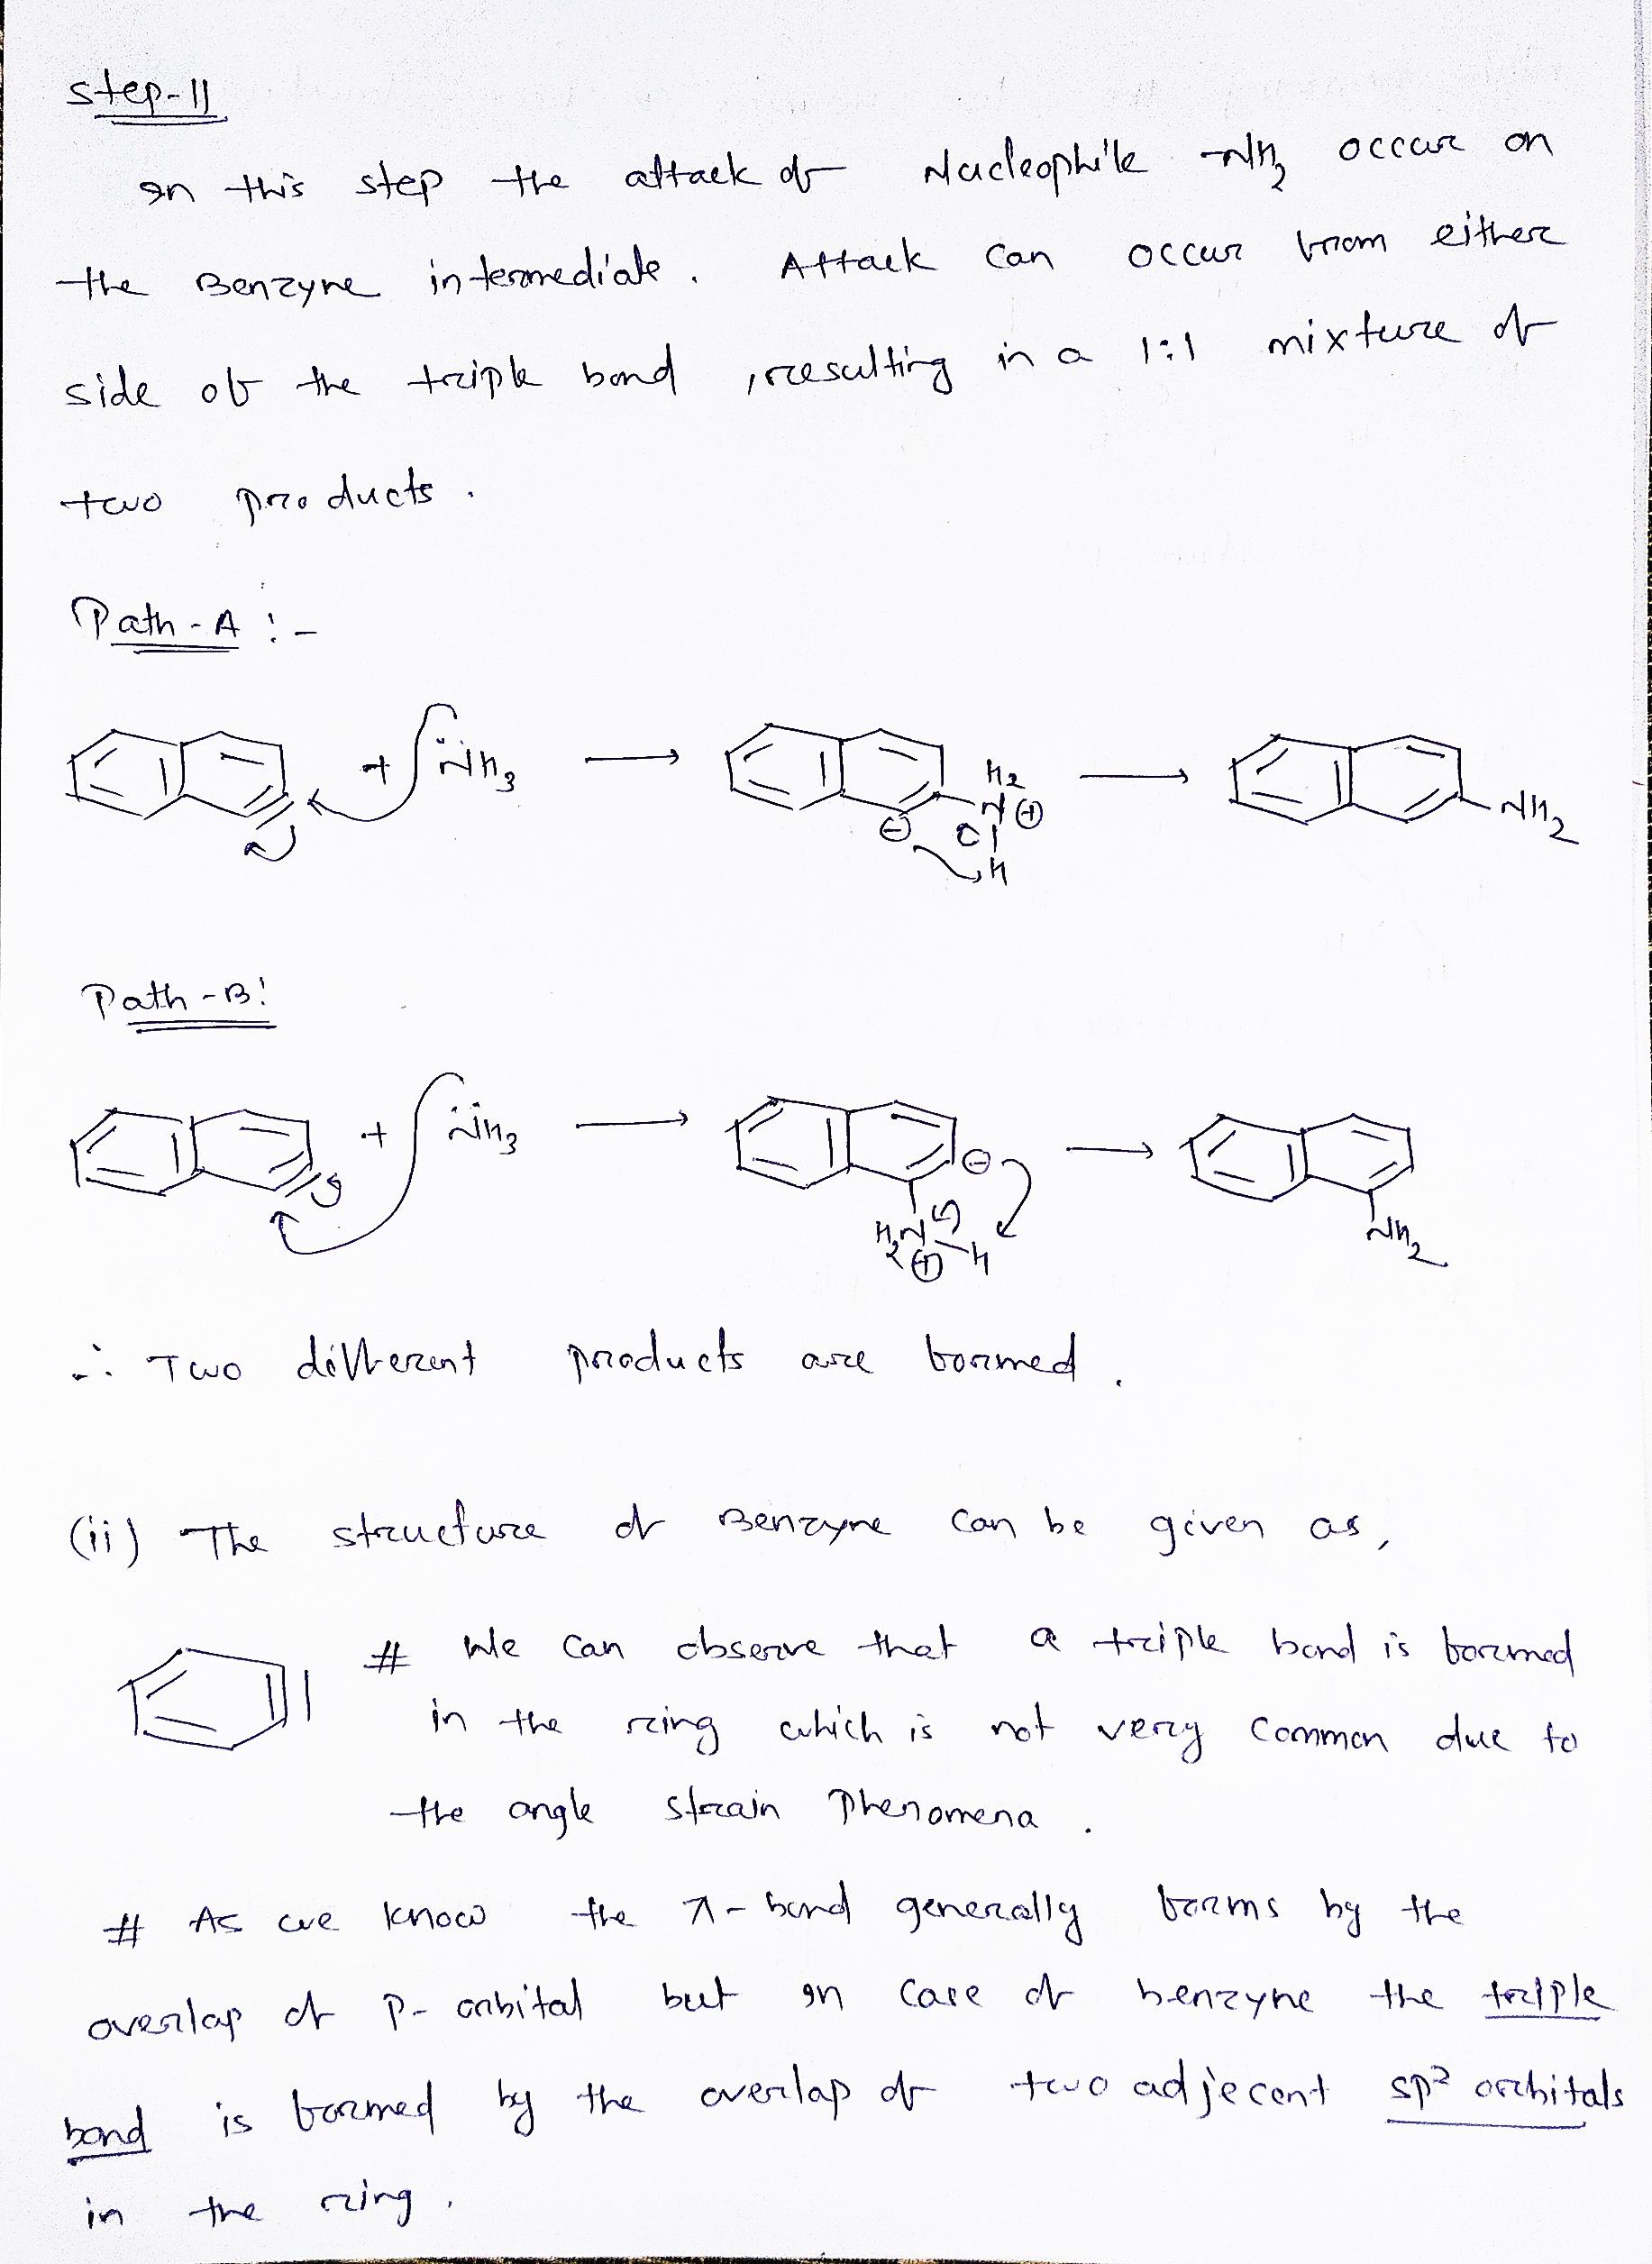 step-II
In this step the attack of Nucleophile -NH2 occur on
the Benzyne intermediate. Attack can occur from either
side of the triple bond, resulting in a 1:1 mixture of
two products.
Path-A :-
+ N̈H3 → H2 N ⊕ ⊖ H → NH2
Path-B:
+ N̈H3 → ⊖ H2N ⊕ H → NH2
∴ Two different products are formed.
(ii) The structure of Benzyne can be given as,
# We can observe that a triple bond is formed
in the ring which is not very common due to
the angle strain Phenomena.
# As we know the π-bond generally forms by the
overlap of P-orbital but in case of benzyne the triple
bond is formed by the overlap of two adjecent sp2 orbitals
in the ring.